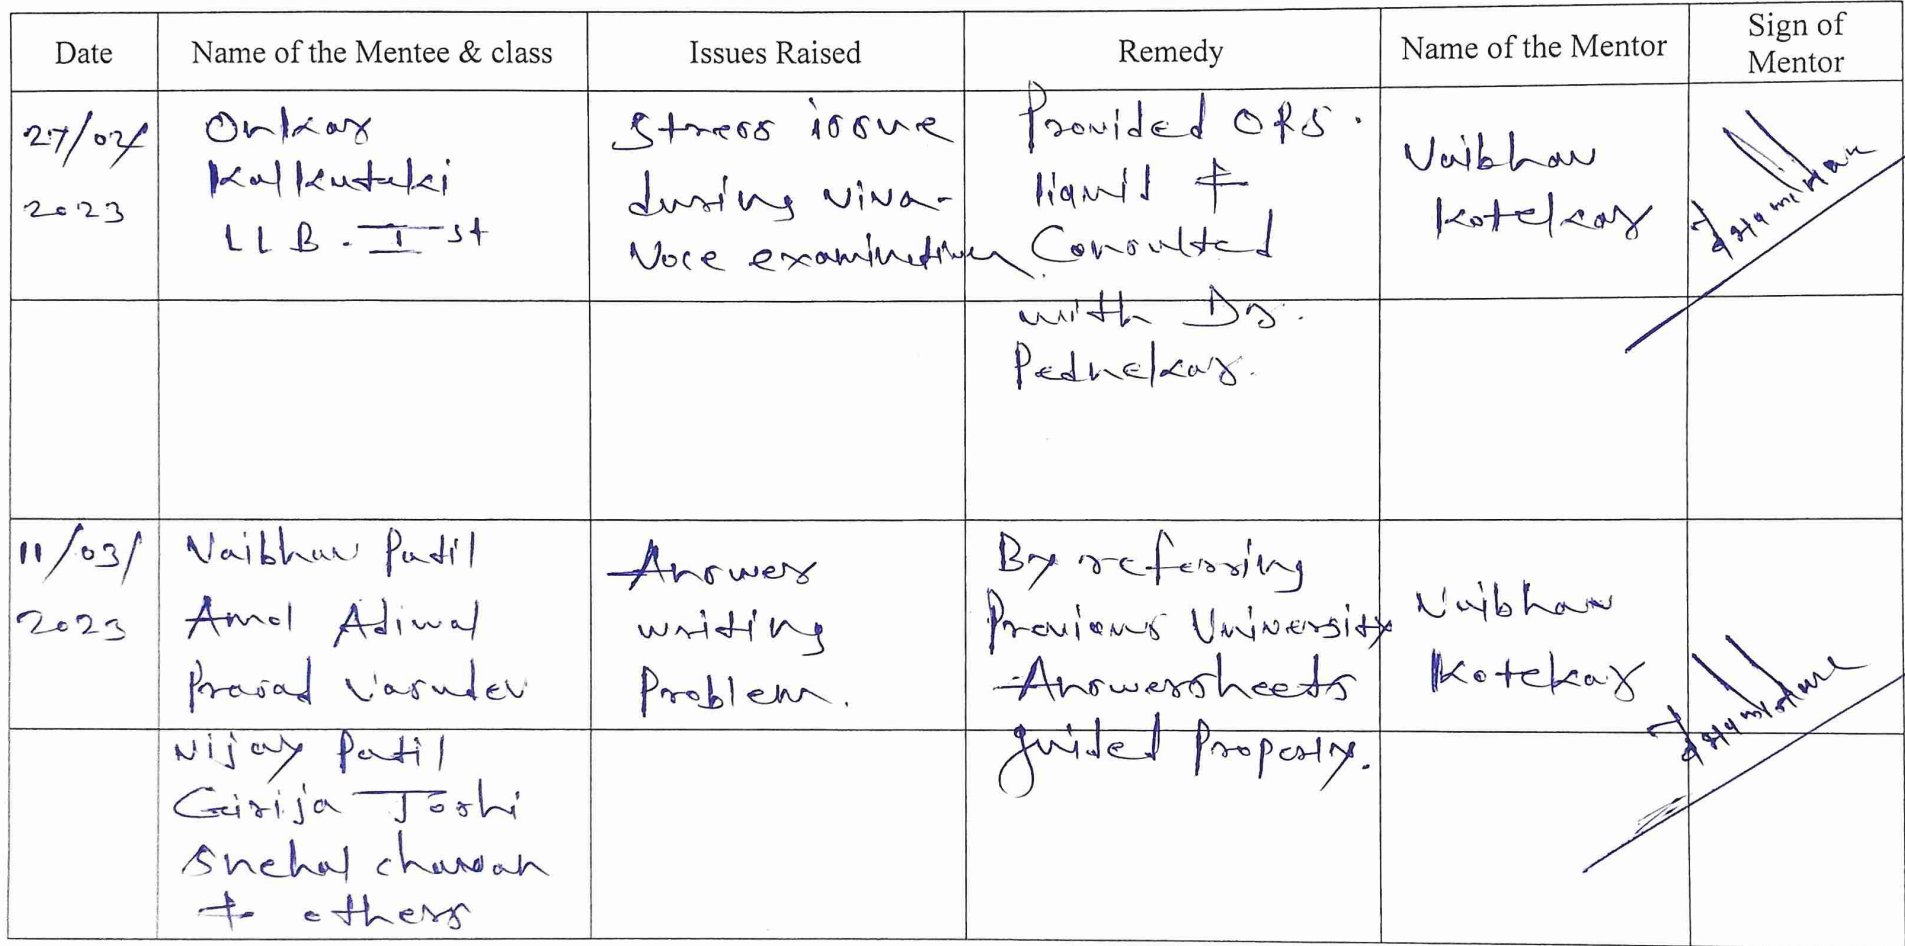 Date
Name of the Mentee & class
Issues Raised
Remedy
Name of the Mentor
Sign of
Mentor
27/02/
2023
Onkar
Kalkutaki
LLB. I st
Stress issue
during viva-
Voce examination
Provided ORS.
liquid &
Consulted
with Dr.
Pednekar.
Vaibhav
Kotekar
11/03/
2023
Vaibhav Patil
Amol Adiwal
Prasad Vasudev
Vijay Patil
Girija Joshi
Snehal chavan
& others
Answer
writing
Problem.
By referring
Previous University
Answersheets
guided Properly.
Vaibhav
Kotekar